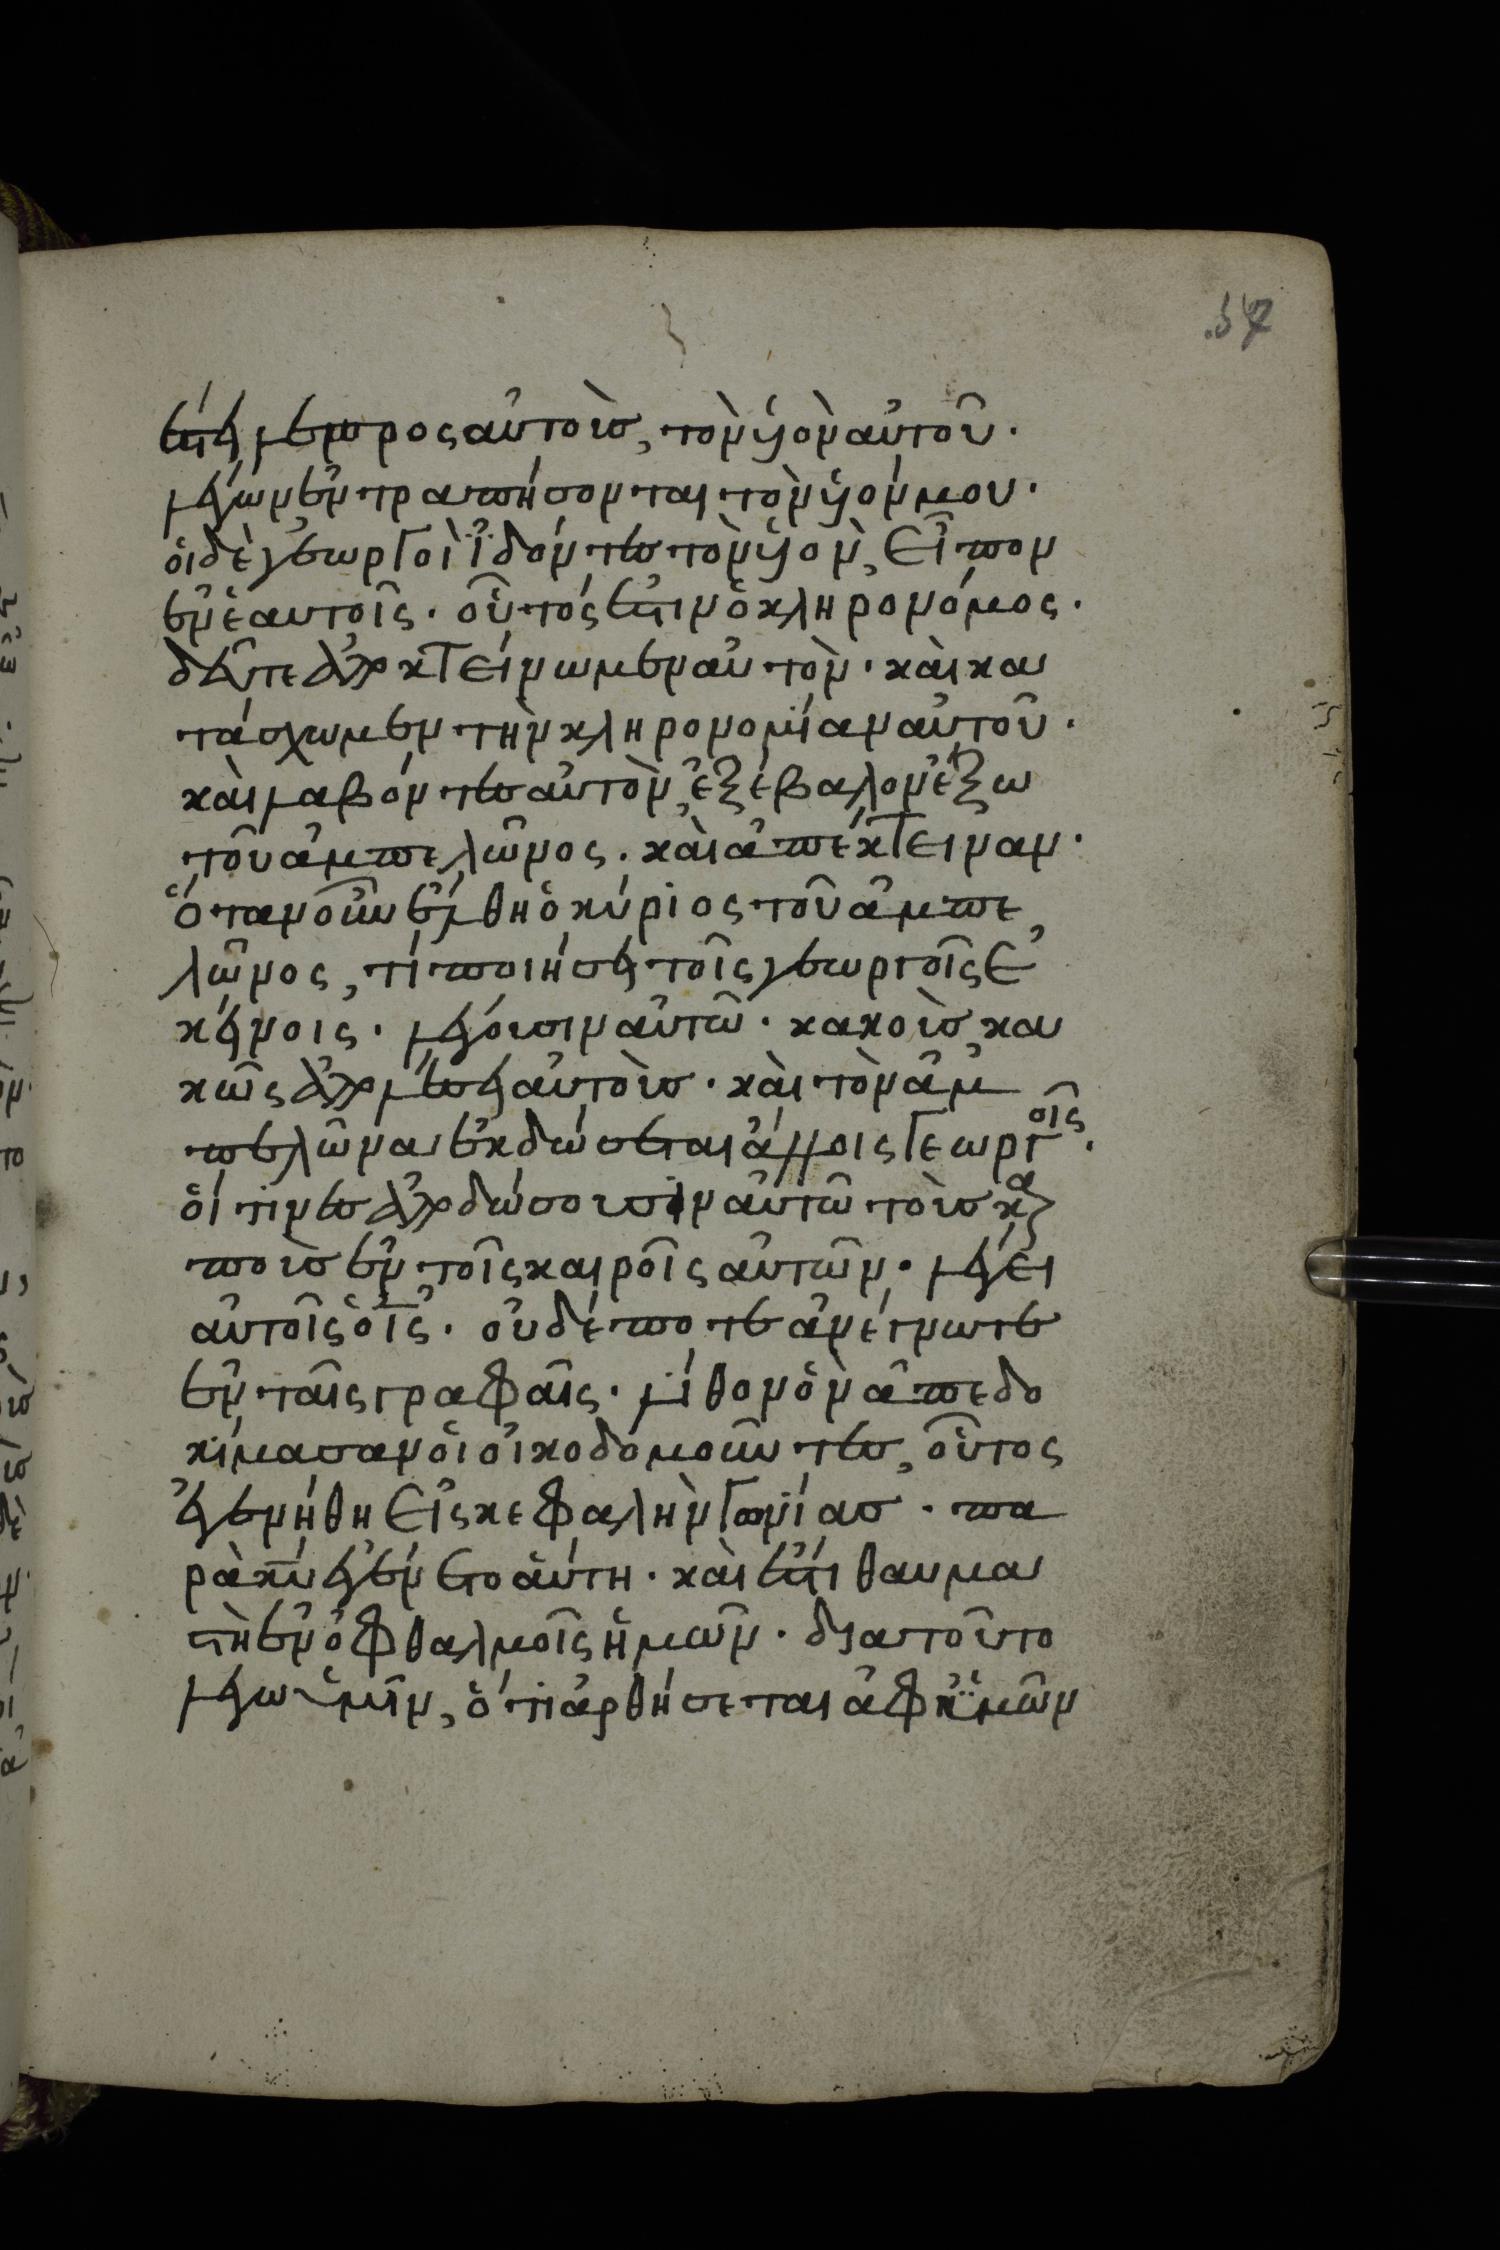 37
έστειλε πρὸς αὐτοὺς, τὸν ὑιὸν αὐτοῦ.
λέγων ἐντραπήσονται τὸν ὑιόν μου.
ὁι δὲ γεωργοὶ ἰδόντες τὸν ὑιὸν, εἶπον
ἐν ἑαυτοῖς. οὗτός ἐστιν ὁ κληρονόμος.
δεῦτε ἀποκτείνωμεν αὐτὸν. καὶ κα
τάσχωμεν τὴν κληρονομίαν αὐτοῦ.
καὶ λαβόντες αὐτὸν, ἐξέβαλον ἔξω
τοῦ ἀμπελῶνος. καὶ ἀπέκτειναν.
ὅταν οὖν ἔλθη ὁ κύριος τοῦ ἀμπε
λῶνος, τί ποιήσει τοῖς γεωργοῖς ἐ
κείνοις. λέγουσιν αὐτῶ. κακοὺς κα
κῶς ἀπολέσει αὐτοὺς. καὶ τὸν ἀμ
πελῶνα ἐκδώσεται ἄλλοις γεωργοῖς.
ὅιτινες ἀποδώσουσιν αὐτῶ τοὺς καρ
ποὺς ἐν τοῖς καιροῖς αὐτῶν. λέγει
αὐτοῖς ὁ ις. οὐδέποτε ἀνέγνωτε
ἐν ταῖς γραφαῖς. λίθον ὃν ἀπεδο
κίμασαν ὁι οἰκοδομοῦντες, οὗτος
ἐγενήθη εἰς κεφαλὴν γωνίας. πα
ρὰ κυ ἐγένετο ἁύτη. καὶ ἔστι θαυμα
στὴ ἐν ὀφθαλμοῖς ἡμῶν. διατοῦτο
λέγω ὑμῖν, ὅτι ἀρθήσεται ἀφ' ὑμῶν